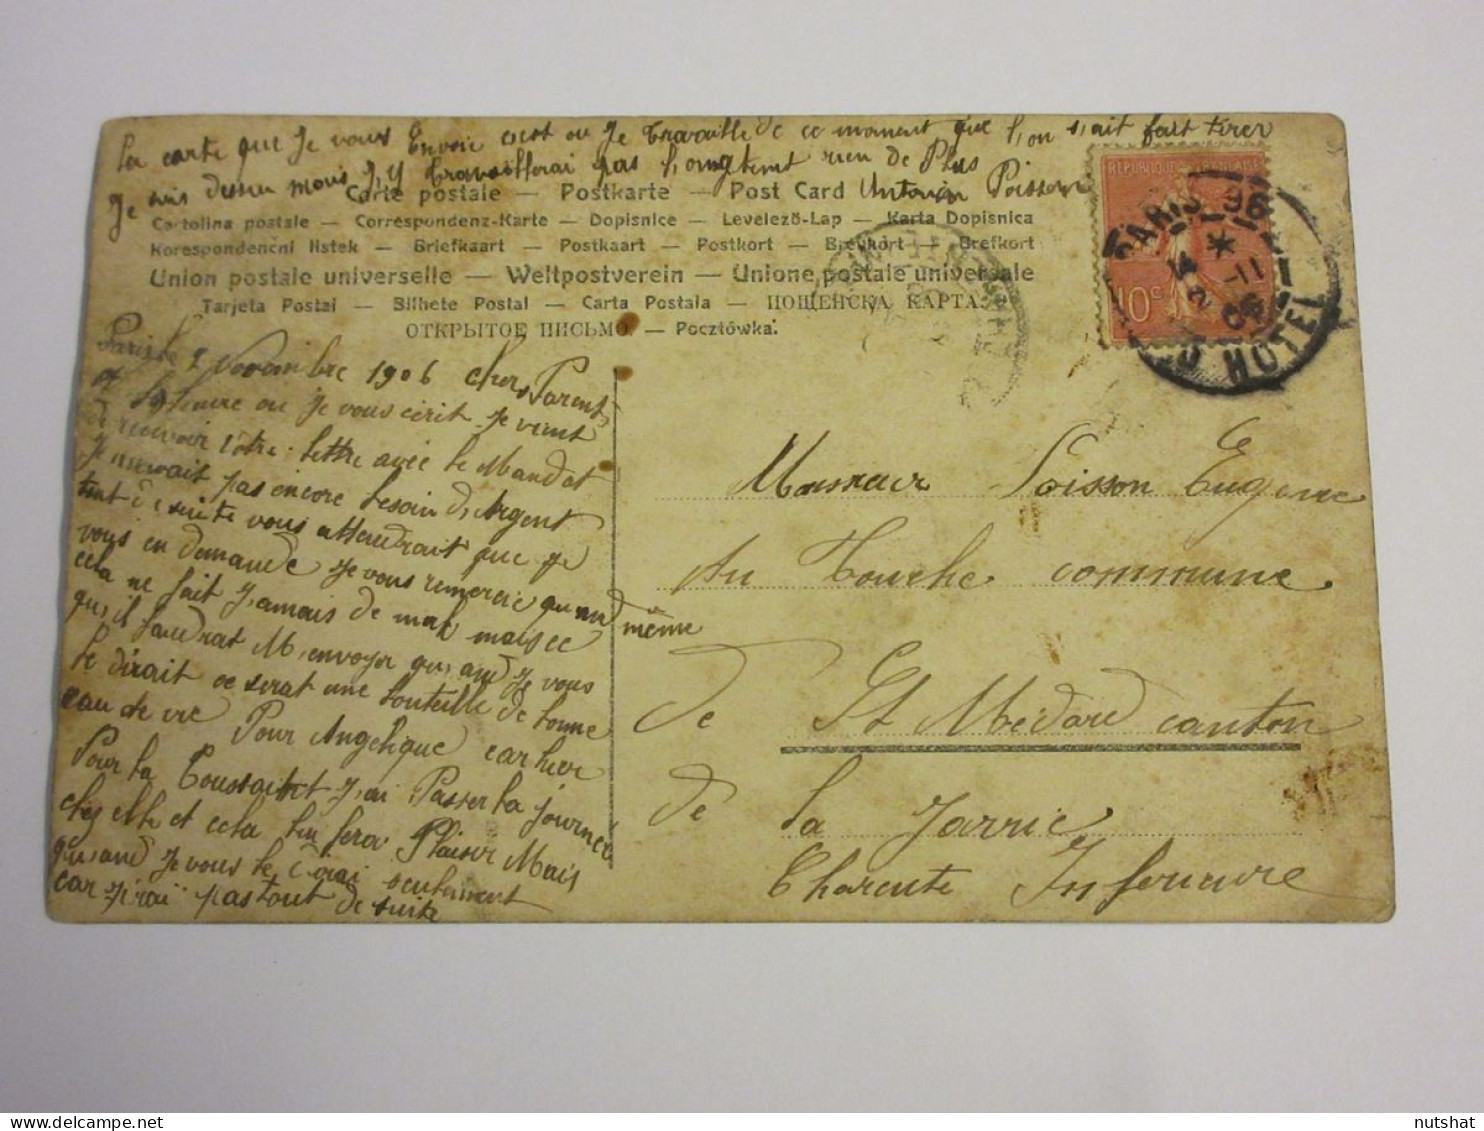 La carte que Je vous Envoie c'est ou Je travaille de ce moment que l,on s,ait fait tirer
Je suis dessu mais J,y travaillerai pas longtemt rien de Plus
Carte postale — Postkarte — Post Card Antonin Poisson
Cartolina postale — Correspondenz-Karte — Dopisnice — Levelező-Lap — Karta Dopisnica
Korespondencni listek — Briefkaart — Postkaart — Postkort — Brevkort — Brefkort
Union postale universelle — Weltpostverein — Unione postale universale
Tarjeta Postal — Bilhete Postal — Carta Postala — ПОЩЕНСКА КАРТА.
ОТКРЫТОЕ ПИСЬМО — Pocztówka.
REPUBLIQUE FRANÇAISE
10c
PARIS 96
14 * 2 -11 06
HOTEL
Paris le 2 Novembre 1906 chers Parents
à l'heure ou Je vous écrit Je vient
de recevoir vôtre lettre avec le Mandat
Je n'avait pas encore besoin d,Argent
tout de suite vous attendrait que Je
vous en demande Je vous remercie quand même
cela ne fait J,amais de mal mais ce
qu,il faudrat M,envoyer qu,and Je vous
le dirait ce serat une bouteille de bonne
eau de vie Pour Angelique car hier
Pour la Toussaint J,ai Passer la journée
chez elle et cela lui fera Plaisir Mais
qu,and Je vous le dirai seulement
car J'irai pas tout de suite
Monsieur Poisson Eugene
Au Touche commune
de St Médard canton
de la Jarrie
Charente Inferieure
nutshat